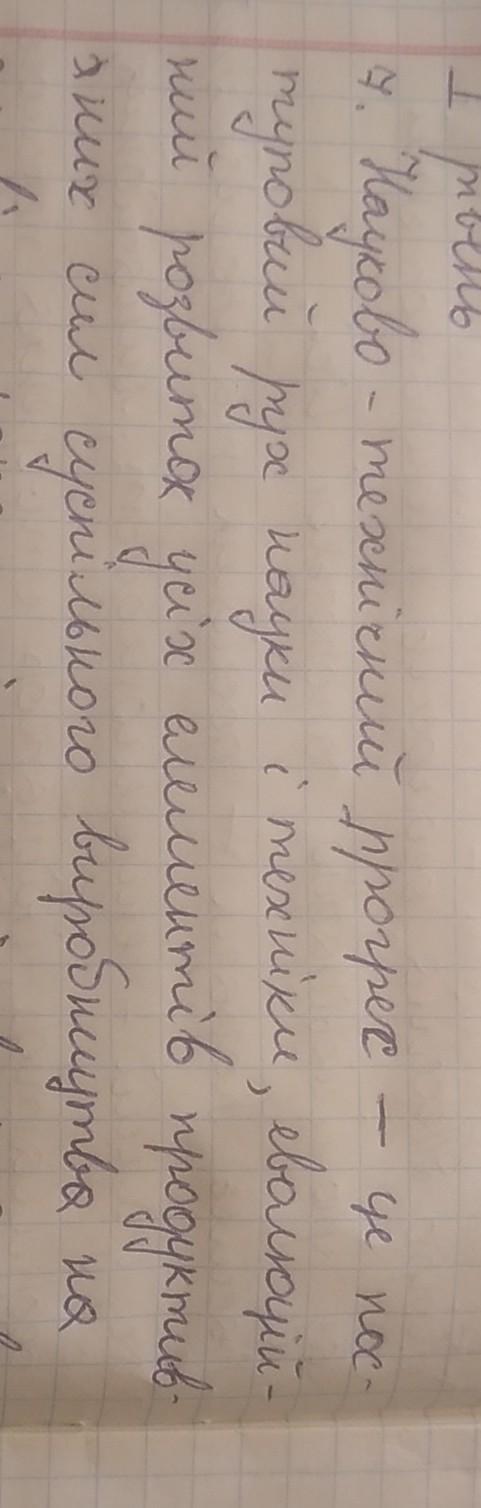 І рівень
7. Науково-технічний прогрес – це пос-
туповий рух науки і техніки, еволюцій-
ний розвиток усіх елементів продуктив-
них сил суспільного виробництва на